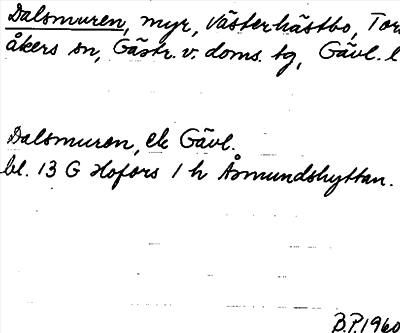 Dalsmuren, myr, Västerhästbo, Tors
åkers sn, Gästr. v. doms. tg, Gävl. l
Dalsmuren, ek Gävl.
bl. 13 G Hofors 1 h Åsmundshyttan.
B.P. 1960